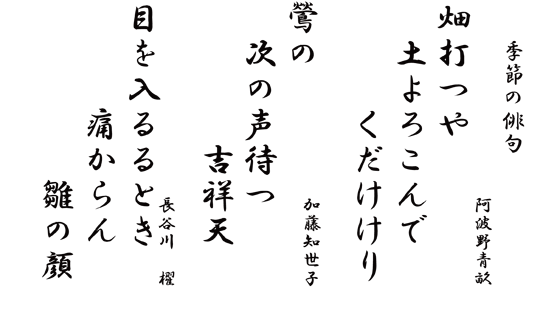 季節の俳句
畑打つや
土よろこんで
くだけけり
阿波野青畝
鶯の
次の声待つ
吉祥天
加藤知世子
目を入るるとき
痛からん
雛の顔
長谷川 櫂